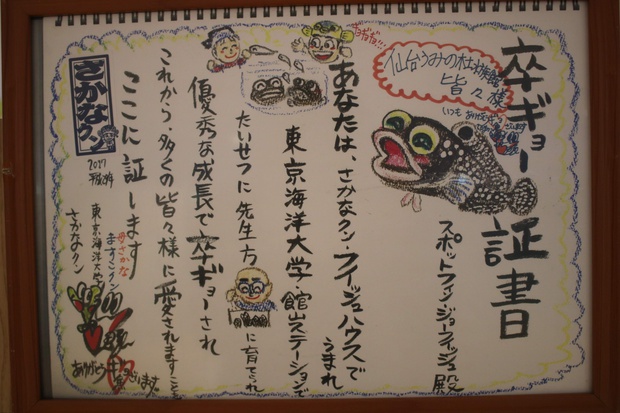 卒ギョー証書
仙台うみの杜水族館
皆々様
いつもありがとうございます
スポットフィンジョーフィッシュ殿
ギョギョギョ!!!
あなたは、さかなクン・フィッシュハウスで
うまれ
東京海洋大学・館山ステーションで
たいせつに先生方に育てられ
優秀な成長で卒ギョーされ
これから・多くの皆々様に愛されますことを
ここに証します
さかなクン
2017
平成29年
東京海洋大学
さかなクン
ありがとうギョざいます。